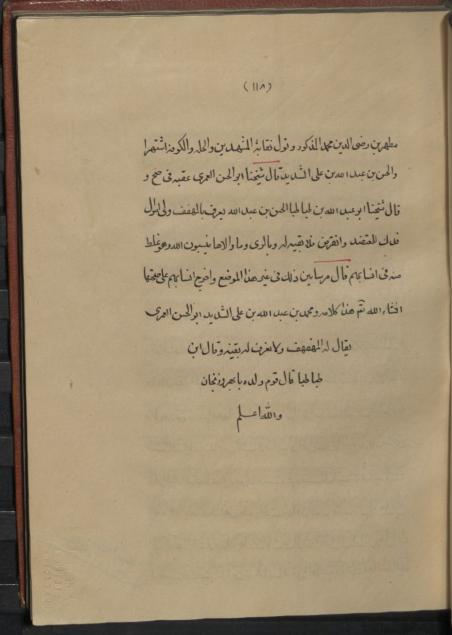 (١١٨)
مطهر بن رضى الدين محمد المذكور وتولى نقابة المشهدين والحلة والكوفة اشتهرا
والحسن بن عبد الله بن على الشديد قال شيخنا ابو الحسن العمرى عقبه فى صح و
قال شيخنا ابو عبد الله بن طباطبا الحسن بن عبد الله يعرف بالهفهف ولى
فدك للمعتضد وانقرض فلا بقية له وبالرى وما والاها ينسبون الله وهو غلط
منه فى انسابهم قال مرسابين ذلك فى غير هذا الموضع واضح انسابهم على صحتها
انشاء الله تم هذا كلامه ومحمد بن عبد الله بن على الشديد ابو الحسن العمرى
يقال له المهفهف ولا يعرف له بقية وقال ابن
طباطبا قال قوم ولده بابهر وزنجان
والله اعلم